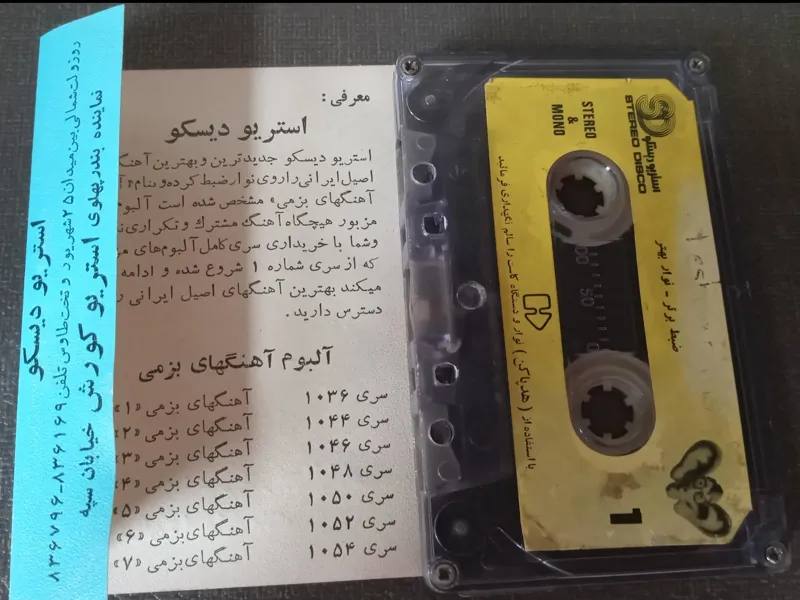 استریو دیسکو
روزولت شمالی بین میدان ۲۵ شهریور و تخت طاوس تلفن ۸۳۶۱۶۹-۸۳۶۷۹۶
نماینده بندر پهلوی استریو کورش خیابان سپه
معرفی :
استریو دیسکو
استریو دیسکو جدیدترین و بهترین آهنگ
اصیل ایرانی را روی نوار ضبط کرده و بنام
آهنگهای بزمی» مشخص شده است آلبوم
مزبور هیچگاه آهنگ مشترك و تکراری
وشما با خریداری سری کامل آلبوم‌های
که از سری شماره ۱ شروع شده و ادامه
میکند بهترین آهنگهای اصیل ایرانی
دسترس دارید .
آلبوم آهنگهای بزمی
سری ۱۰۳۶ آهنگهای بزمی «۱»
سری ۱۰۴۴ آهنگهای بزمی «۲»
سری ۱۰۴۶ آهنگهای بزمی «۳»
سری ۱۰۴۸ آهنگهای بزمی «۴»
سری ۱۰۵۰ آهنگهای بزمی «۵»
سری ۱۰۵۲ آهنگهای بزمی «۶»
سری ۱۰۵۴ آهنگهای بزمی «۷»
استریو دیسکو
STEREO DISCO
STEREO
&
MONO
ضبط برتر - نوار بهتر
100 50 0
با استفاده از ( هد پاک کن ) نوار و دستگاه کاست را سالم نگهداری فرمائید
1